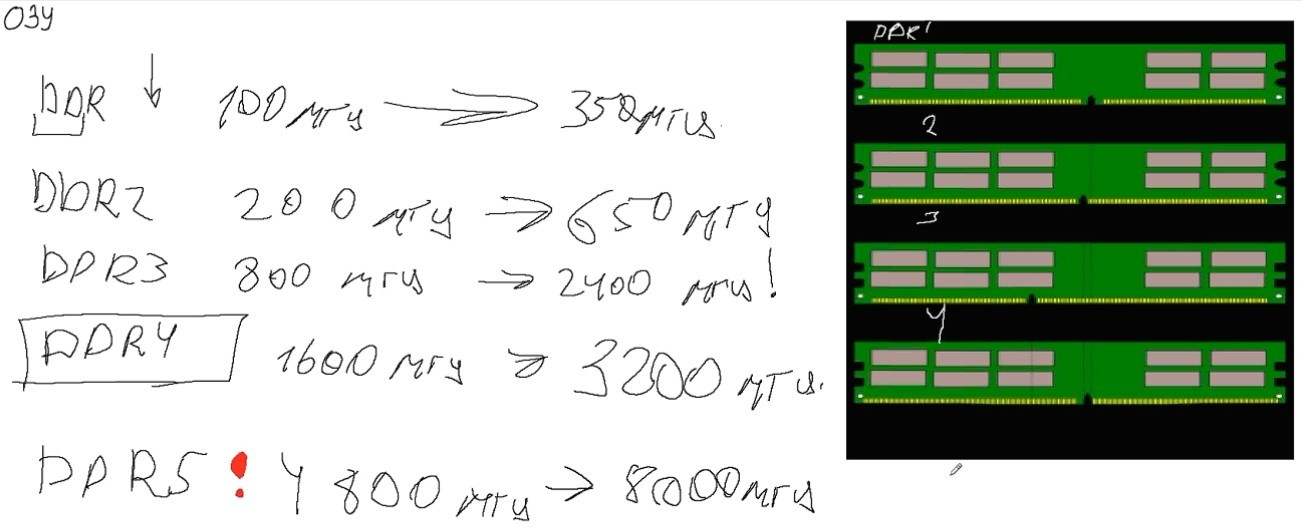 ОЗУ
DDR ↓ 100 мгц → 350 мгц.
DDR2 200 мгц → 650 мгц
DDR3 800 мгц → 2400 мгц!
DDR4 1600 мгц → 3200 мгц.
DDR5 ! 4800 мгц → 8000 мгц
DDR1
2
3
4